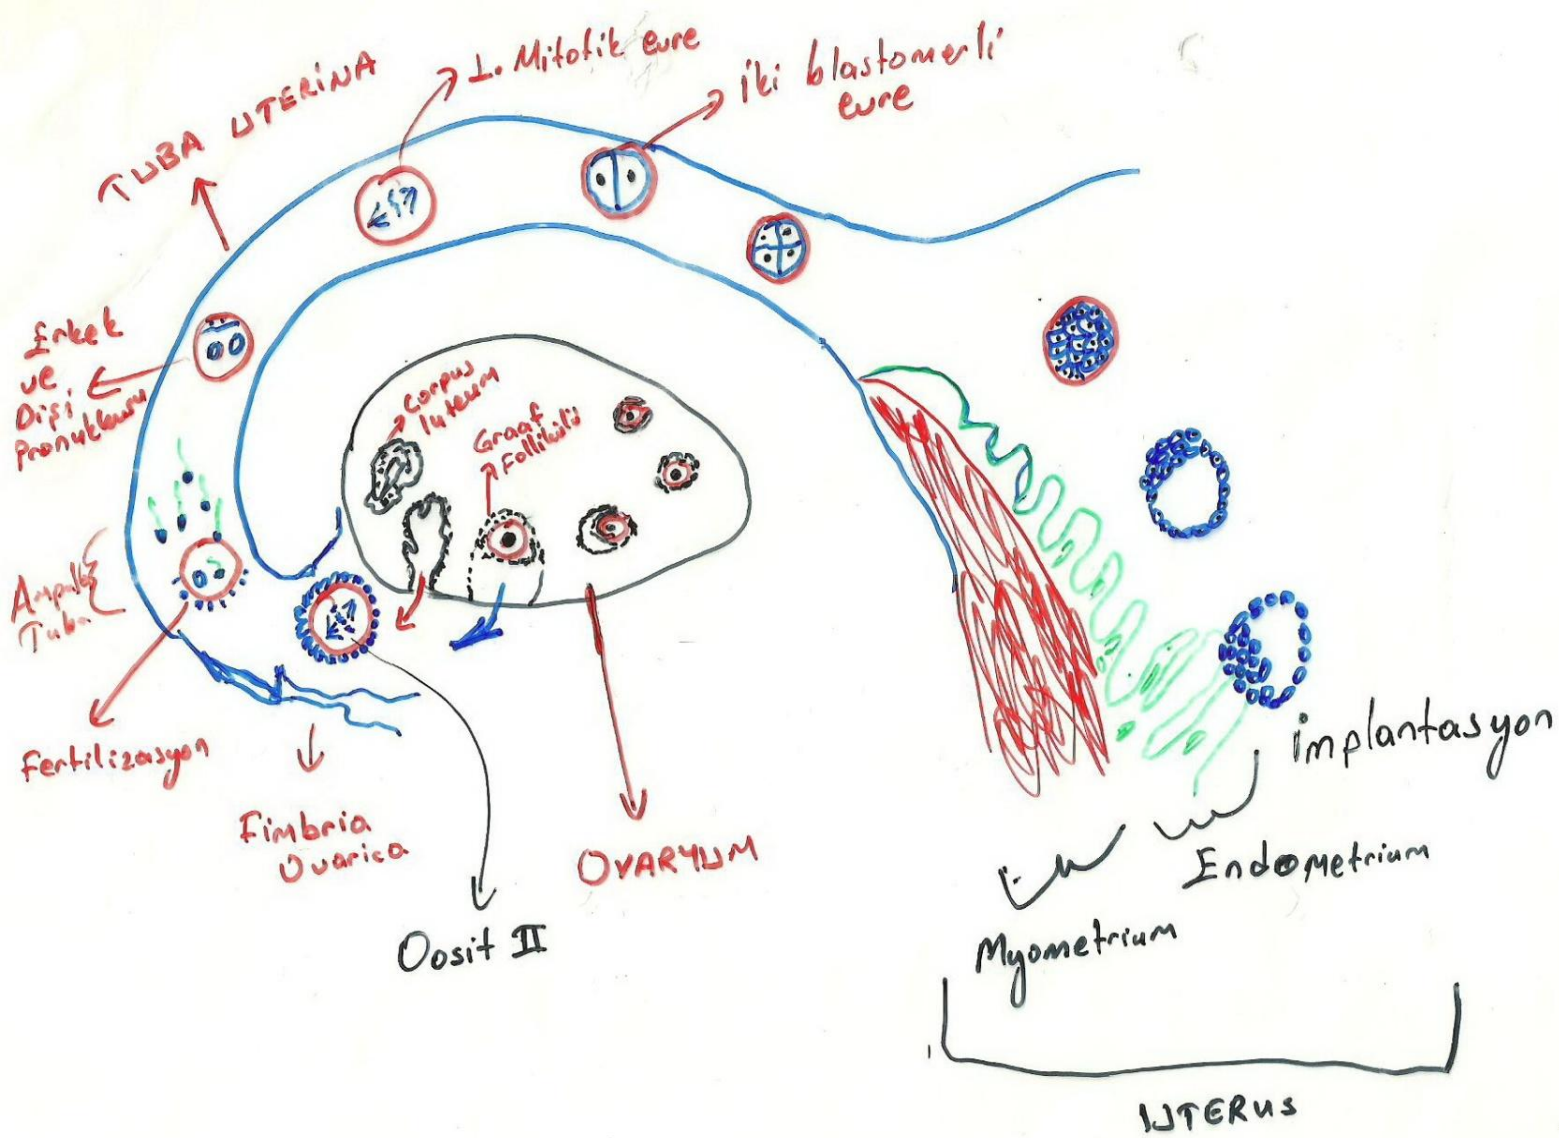 TUBA UTERİNA
1. Mitotik evre
İki blastomerli
evre
Erkek
ve
Dişi
Pronukleusu
Corpus
luteum
Graaf
Follikülü
Ampulla
Tuba
Fertilizasyon
Fimbria
Ovarica
OVARYUM
Oosit II
İmplantasyon
Endometrium
Myometrium
UTERUS